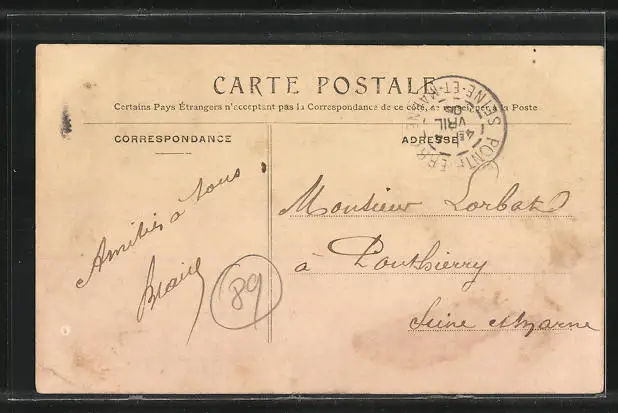 CARTE POSTALE
Certains Pays Étrangers n'acceptant pas la Correspondance de ce côté, se renseigner à la Poste
CORRESPONDANCE
ADRESSE
SEINE-ET-MARNE
AVRIL
Amitiés à tous
89
Monsieur Lorbat
à Ponthierry
Seine et Marne